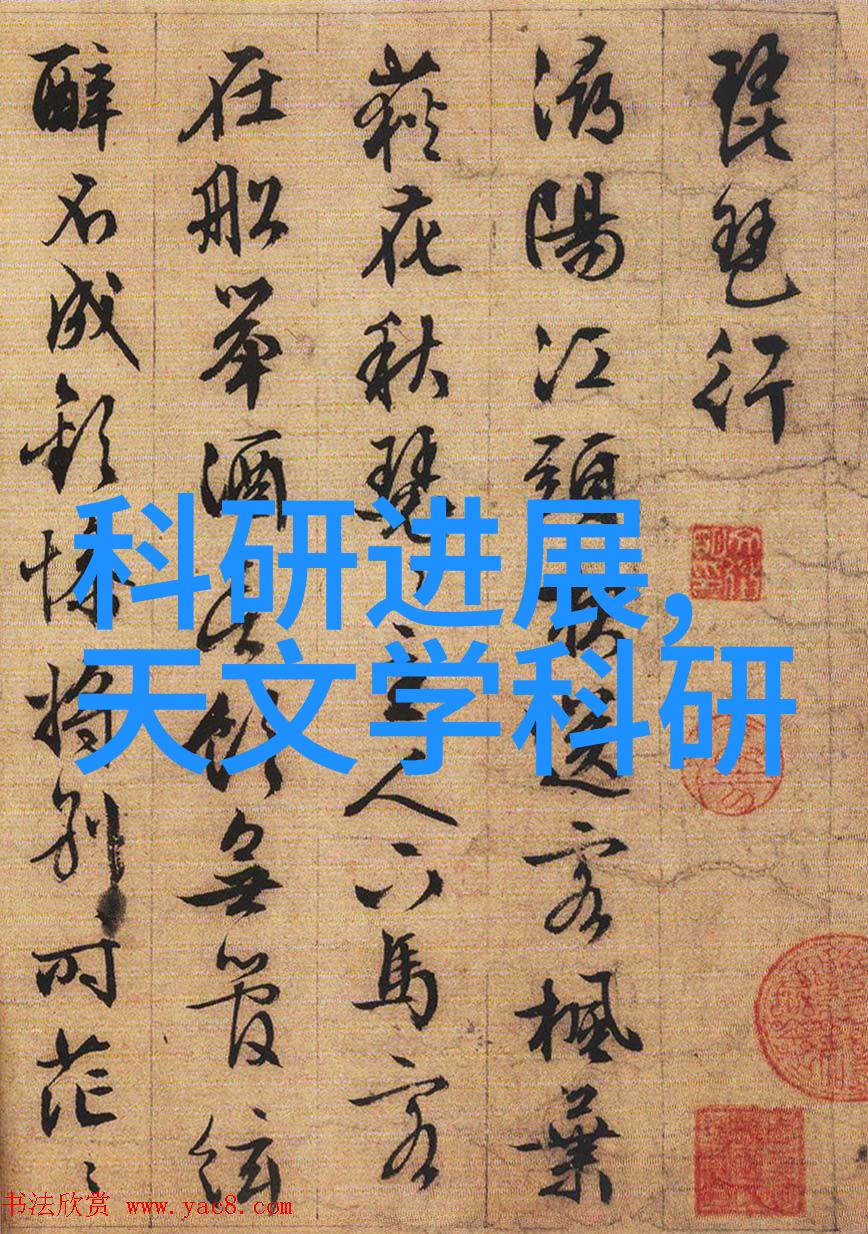 琵琶行
潯陽江頭夜送客楓葉
荻花秋瑟〻主人下馬客
在船舉酒欲飲無管絃
醉不成歡慘將別時茫〻
科研进展,
天文学科研
书法欣赏 www.yac8.com